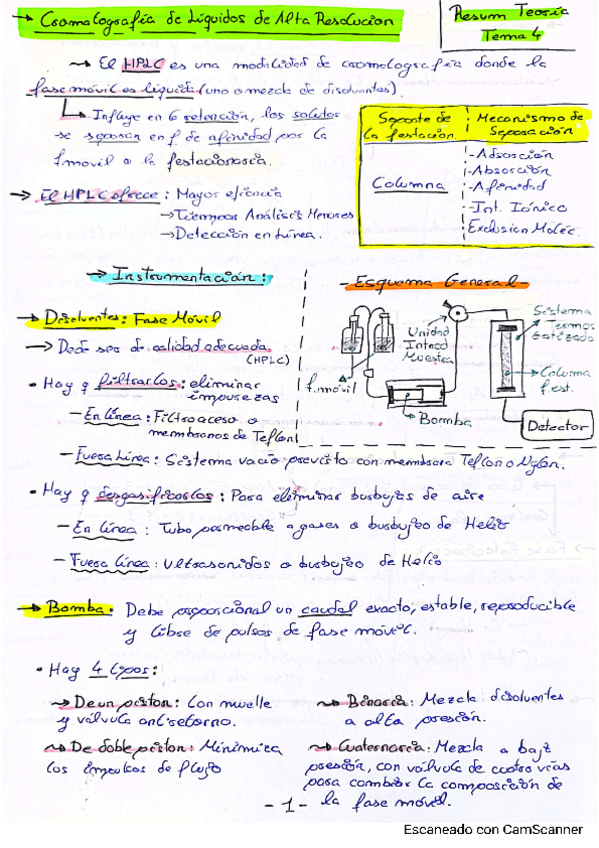 → Cromatografía de Líquidos de Alta Resolucion
Resum Teoría
Tema 4
→ El HPLC es una modalidad de cromatografía donde la
fase móvil es líquida (uno o mezcla de disolventes).
Influye en la retención, los solutos
se separan en f. de afinidad por la
f.móvil o la f.estacionaria.
Soporte de
la f.estación.
Mecanismo de
Separación
Columna
-Adsorción
-Absorción
-Afinidad
-Int. Iónico
Exclusion Molec.
→ El HPLC ofrece: Mayor eficiencia
→Tiempos Análisis Menores
→Detección en Línea.
→ Instrumentación:
-Esquema General-
Unidad
Introd
Muestra
Sistema
Termos
tatizado
f.móvil
Bomba
Columna
f.est.
Detector
→ Disolventes: Fase Móvil
→ Debe ser de calidad adecuada
(HPLC)
• Hay q filtrarlos: eliminar
impurezas
- En Línea: Filtro acero o
membranas de Teflon
- Fuera Línea: Sistema vacio previsto con membrana Teflon o Nylon.
• Hay q desgasificarlos: Para eliminar burbujas de aire
- En línea: Tubo permeable a gases o burbujeo de Helio
- Fuera línea: Ultrasonidos o burbujeo de Helio
→ Bomba. Debe proporcional un caudal exacto, estable, reproducible
y libre de pulsos de fase móvil.
• Hay 4 tipos:
→ De un piston: Con muelle
y válvula antiretorno.
→ De doble piston: Minimiza
los impulsos de flujo
→ Binaria: Mezcla disolventes
a alta presión.
→ Cuaternaria: Mezcla a baja
presión, con válvula de cuatro vías
para cambiar la composición de
la fase móvil.
- 1 -
Escaneado con CamScanner